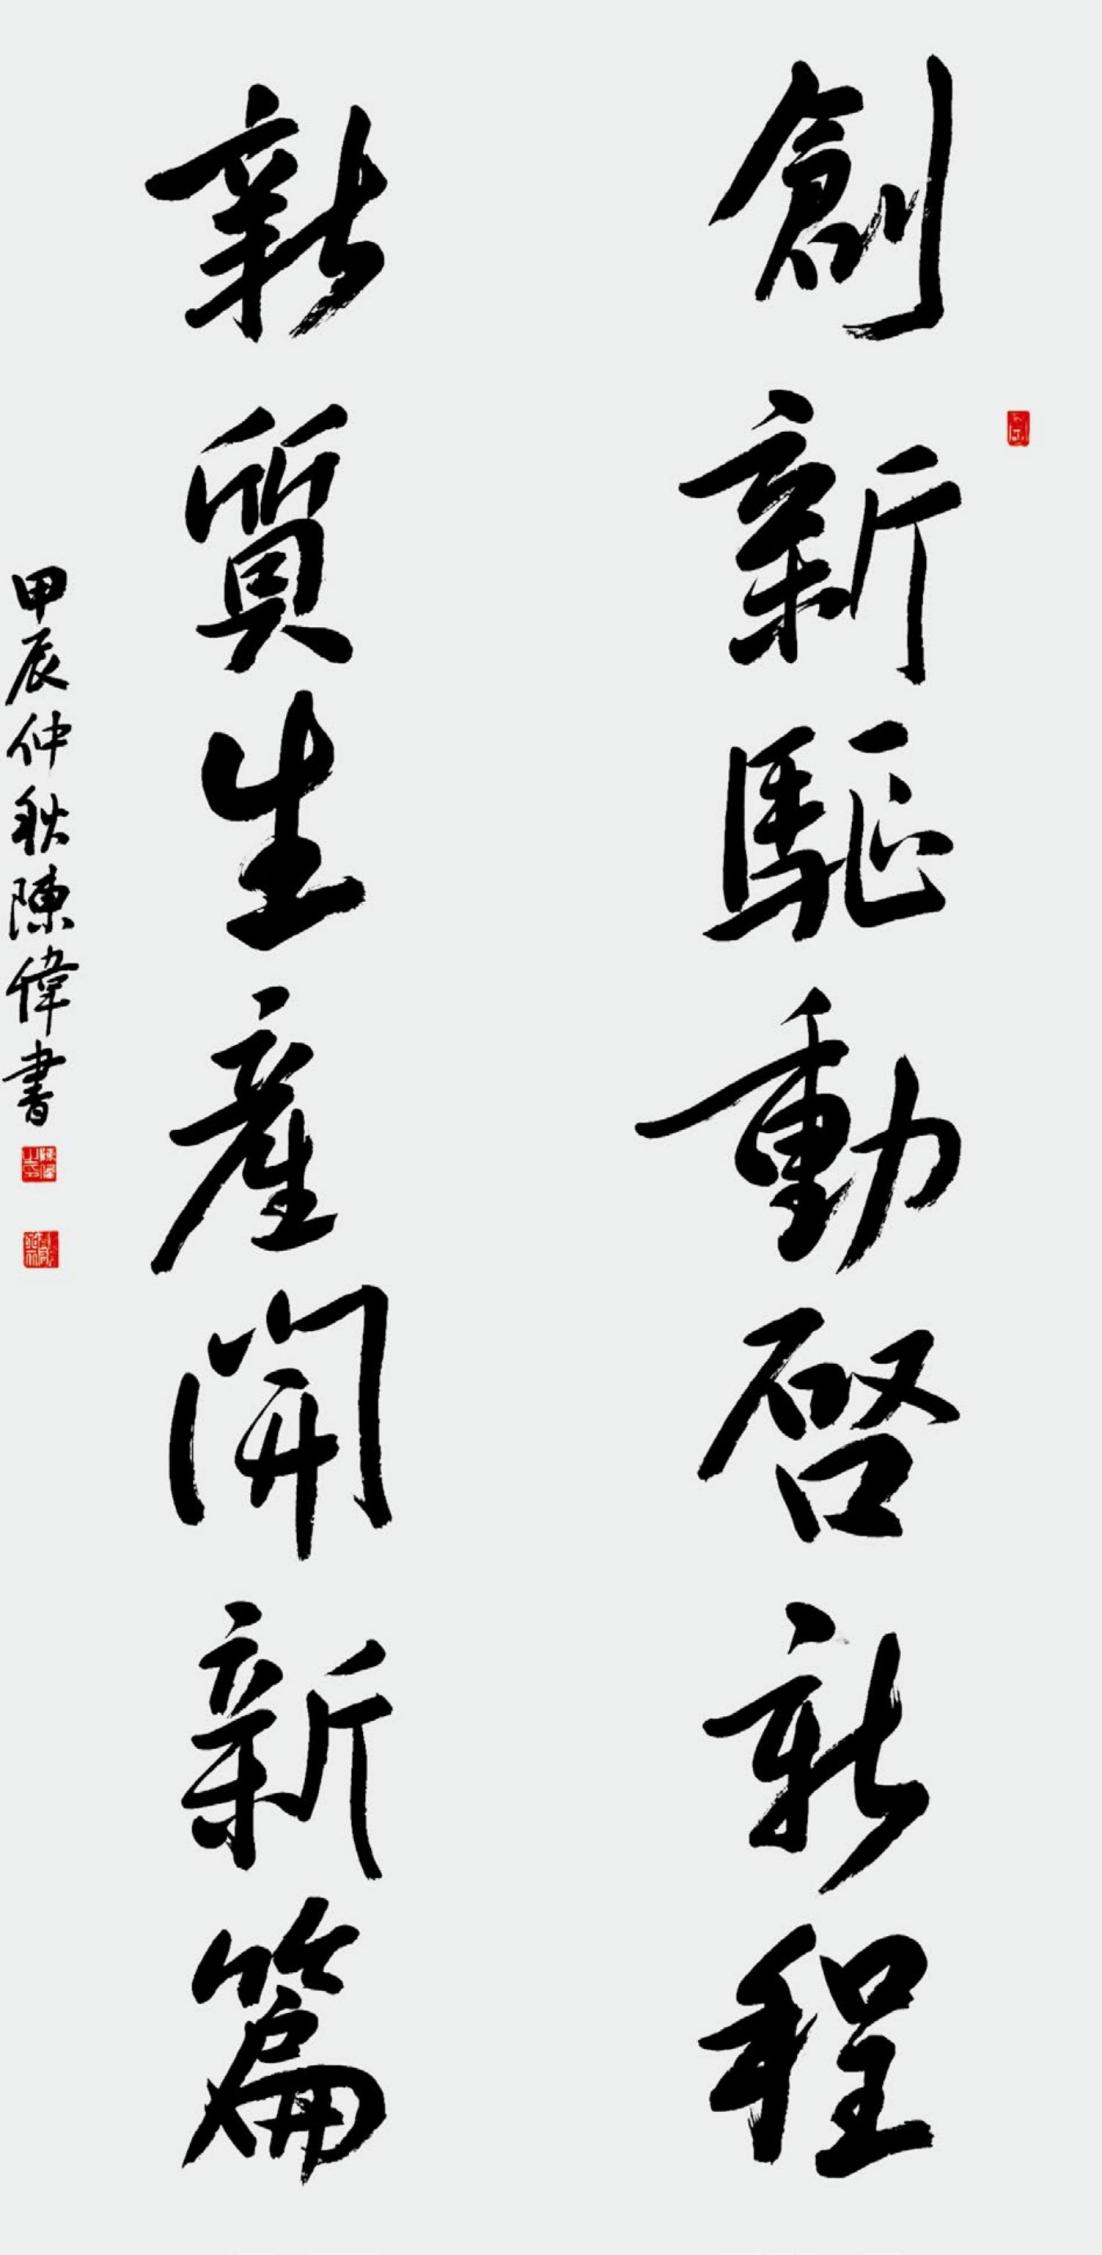 創新驅動啓新程
新質生産開新篇
甲辰仲秋陳偉書